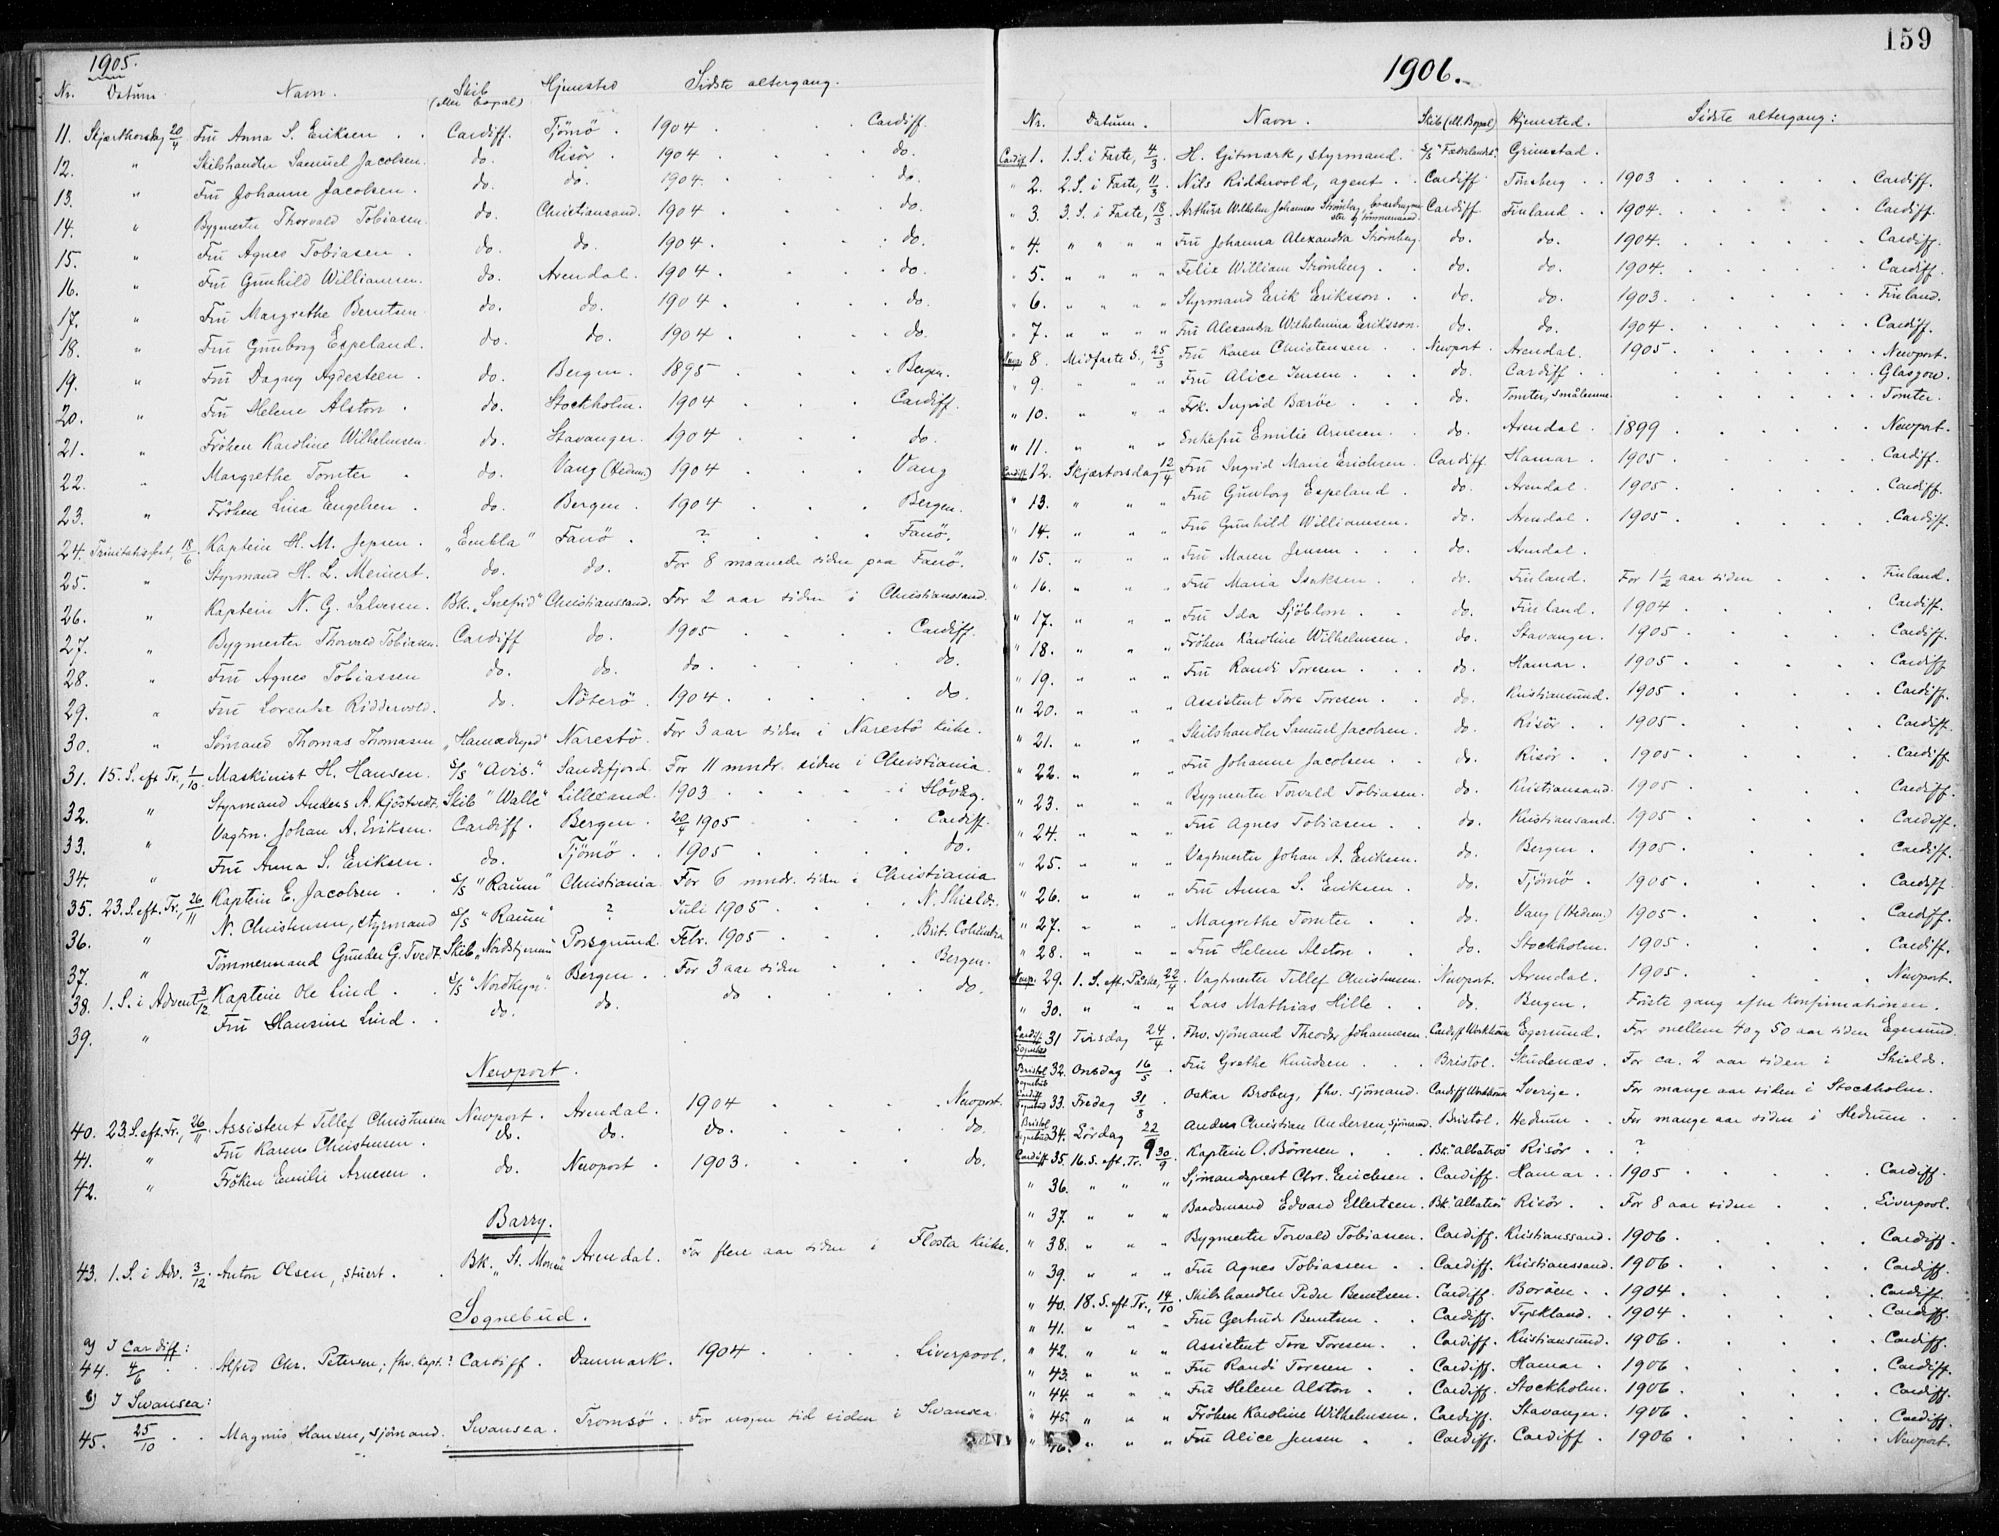 1905.
Nr. Datum Navn. Skib (eller bopæl) Hjemsted Sidste altergang.
11. Skjærthorsdag 20/4 Fru Anna S. Eriksen . . Cardiff. Tjömö . 1904 . . . . Cardiff.
12. " Skibshandler Samuel Jacobsen. do. Risör . 1904 . . . . do.
13. " Fru Johanne Jacobsen . do. do. 1904. . . . do.
14. " Bygmester Thorvald Tobiasen. do. Christiansand. 1904 . . . . do.
15. " Fru Agnes Tobiasen . do. do. 1904 . . . . do.
16. " Fru Gunhild Williamsen. do. Arendal. 1904 . . . . do.
17. " Fru Margrethe Berntsen. do. do. 1904 . . . . do.
18. " Fru Gunborg Espeland. do. do. 1904 . . . . do.
19. " Fru Dagny Agdesteen . do. Bergen. 1895 . . . . Bergen.
20. " Fru Helene Alston . do. Stockholm. 1904 . . . Cardiff.
21. " Fröken Karoline Wilhelmsen do. Stavanger. 1904 . . . do.
22. " Margrethe Tomter . do. Vang (Hedem.) 1904 . . . Vang
23. " Fröken Lina Engelsen . do. Bergen . 1904 . . . Bergen.
24. Trinitatisfest, 18/6. Kaptein H. M. Jepsen . "Embla" Fanö . ? . . . . Fanö.
25. " Styrmand H. L. Meinert. do. do. For 8 maaneder siden paa Fanö.
26. " Kaptein N. G. Salvesen. Bk. "Snefrid" Christianssand. For 2 aar siden i Christianssand.
27. " Bygmester Thorvald Tobiasen. Cardiff do. 1905 . . . . Cardiff.
28. " Fru Agnes Tobiassen do. do. do . . . . . do.
29. " Fru Lorentze Riddervold. do. Nöterö . 1904 . . . . do.
30. " Sömand Thomas Thomasen Narestö . For 3 aar siden i Narestö kirke.
31. 15. S. eft. Tr., 1/10. Maskinist H. Hansen. S/S "Avis." Sandefjord. For 11 mndr. siden i Christiania.
32. " Styrmand Anders A. Kjöstvedt. Skib "Walle" Lillesand. 1903 . . . . i Hövåg.
33. " Vagtm. Johan A. Eriksen. Cardiff. Bergen. 20/4 1905 . . . . Cardiff.
34. " Fru Anna S. Eriksen . do. Tjömö . . 1905 . . . . do.
35. 23. S. eft. Tr., 26/11 Kaptein E. Jacobsen . . S/S "Raum" Christiania. For 6 mndr. siden i Christiania
36. " N. Christensen, styrmand S/S "Raum" ? Juli 1905 . . . . N. Shields.
37. " Tömmermand Gunder G. Tvedt. Skib Porsgrund. Febr. 1905 . . . Brit. Columbia
38. 1. S. i Advent 3/12 Kaptein Ole Lind . . S/S "Nordkyn" Bergen . . For 3 aar siden . . . Bergen.
39. " Fru Hansine Lind . . do. do. do . . . . do.
Newport.
40. 23. S. eft. Tr., 26/11 . Assistent Tellef Christensen Newport . Arendal. 1904 . . . . Newport.
41. " Fru Karen Christensen . do. do. do. . . . . do.
42. " Fröken Emilie Arnesen . do. Newport . 1903. . . . do.
Barry.
43. 1. S. i Adv. 3/12 . Anton Olsen, stuert . . Bk. Arendal. For flere aar siden i Flosta kirke.
Sognebud.
a) I Cardiff:
44. 4/6 . . Alfred Chr. Petersen; fhv. kapt.? Cardiff . Danmark. 1904 . . . . Liverpool.
b) I Swansea:
45. 25/10 . . Magnus Hansen, sjömand. Swansea. Tromsö . . For nogen tid siden i Swansea.
159
1906.
Nr. Datum. Navn. Skib (ell. Bopæl) Hjemsted. Sidste altergang:
Cardiff 1. 1. S. i Faste, 4/3 . H. Gitmark, styrmand. S/S "Fædrelandet". Grimstad.
" 2. 2. S. i Faste, 11/3 . Nils Riddervold, agent . . Cardiff. Tönsberg . . 1903 . . . . . . Cardiff.
" 3. 3. S. i Faste, 18/3 . Arthur Wilhelm Johannes Strömberg, Cardiff Finland . . 1904. . . . . . . Cardiff.
" 4. " " " " Fru Johanna Alexandra Strömberg. do. do. 1904. . . . . . . Cardiff.
" 5. " " " " Felix William Strömberg . . do. do. 1904. . . . . . . Cardiff.
" 6. " " " " Styrmand Erik Eriksson . . do. do. 1903 . . . . . . Finland.
" 7. " " " " Fru Alexandra Wilhelmina Eriksson. do. do. 1904 . . . . . . Cardiff.
Newp. 8. Midfaste S., 25/3 Fru Karen Christensen . . Newport . Arendal. 1905 . . . . . . Newport.
" 9. " " " Fru Alice Jensen . . . do. Cardiff . . . . . . . . Glasgow.
" 10. " " " Frk. Ingrid Bæröe . . . do. Tomter, Smålenene. . . . . . . Tomter.
" 11. " " " Enkefru Emilie Arnesen . . do. Arendal . 1899 . . . . . . Newport.
Cardiff 12. Skjærtorsdag 12/4 Fru Ingrid Marie Erichsen . Cardiff. Hamar . 1905 . . . . . . Cardiff.
" 13. " " " Fru Gunborg Espeland . do. Arendal . 1905 . . . . . . Cardiff.
" 14. " " " Fru Gunhild Williamsen. do. Arendal . 1905 . . . . . . Cardiff.
" 15. " " " Fru Maren Jensen . . . do. Arendal.
" 16. " " " Fru Maria Isaksen . . do. Finland. For 1 1/2 aar siden . . . Finland.
" 17. " " " Fru Ida Sjöblom . . do. Finland. 1904 . . . . . Cardiff.
" 18. " " " Fröken Karoline Wilhelmsen . do. Stavanger. 1905 . . . . . Cardiff.
" 19. " " " Fru Randi Toresen . . . do. Hamar. 1905 . . . . Cardiff
" 20. " " " Assistent Tore Toresen . . do. Kristiansund. 1905 . . . . Cardiff.
" 21. " " " Skibshandler Samuel Jacobsen. do. Risör . . 1905 . . . . Cardiff.
" 22. " " " Fru Johanne Jacobsen . . do. Risör . . 1905 . . . . Cardiff.
" 23. " " " Bygmester Torvald Tobiasen. do. Kristiansand. 1905 . . . . Cardiff.
" 24. " " " Fru Agnes Tobiasen . . do. Kristiansand. 1905 . . . . Cardiff.
" 25. " " " Vagtmester Johan A. Eriksen. do. Bergen . 1905 . . . . Cardiff.
" 26. " " " Fru Anna S. Eriksen . do. Tjömö . 1905 . . . . Cardiff.
" 27. " " " Margrethe Tomter . . do. Vang (Hedem.) 1905 . . . . Cardiff.
" 28. " " " Fru Helene Alston . . do. Stockholm. 1905 . . . . Cardiff.
Newp. 29. 1. S. eft. Påske, 22/4 . Vagtmester Tellef Christensen. Newport. Arendal. 1905 . . . . Newport.
" 30. " " " Lars Mathias Hille . . do. Bergen . Förste gang efter konfirmationen.
Cardiff Sognebud 31 Tirsdag 24/4 . Fhv. sjömand Theodor Johannesen. Cardiff Workhouse Egersund. For mellem 40 og 50 aar siden Egersund.
Bristol Sognebud 32. Onsdag 16/5 . Fru Grethe Knudsen . . . Bristol. Skudenæs. For ca. 2 aar siden i Shields.
Cardiff Sognebud 33. Fredag 31/8 . Oskar Broberg, fhv. sjömand. Cardiff Workhouse Sverige. For mange aar siden i Stockholm.
Bristol Sognebud 34. Lördag 22/9 Anders Christian Andersen, sjömand. Bristol. Hedrum . . For mange aar siden i Hedrum . .
Cardiff 35. 16. S. eft. Tr. 30/9 . Kaptein O. Börresen . . . Bk. "Albatros" Risör . . ?
" 36. " " " Sjömandsprest Chr. Erichsen . Cardiff. Hamar . . 1905 . . . . . Cardiff.
" 37. " " " Baadsmand Edvard Ellertsen. Bk. "Albatros" Risör . . For 8 aar siden . . . Liverpool.
" 38. " " " Bygmester Torvald Tobiassen. Cardiff. Kristianssand. 1906 . . . . . Cardiff.
" 39. " " " Fru Agnes Tobiassen . . Cardiff. Kristianssand. 1906 . . . . . Cardiff.
" 40. 18. S. eft. Tr., 14/10 . Skibshandler Peder Berntsen. Cardiff. Boröen . . 1904 . . . . . Cardiff.
" 41. " " " Fru Gertrud Berntsen . . Cardiff. Tyskland. . 1904 . . . . . Cardiff.
" 42. " " " Assistent Tore Toresen. . Cardiff. Kristiansund. 1906 . . . . . Cardiff.
" 43. " " " Fru Randi Toresen . . Cardiff. Hamar . 1906 . . . . . Cardiff.
" 44. " " " Fru Helene Alston . . Cardiff. Stockholm. 1906 . . . . . Cardiff.
" 45. " " " Fröken Karoline Wilhelmsen. Cardiff. Stavanger. 1906 . . . . . Cardiff.
" 46. " " " Fru Alice Jensen . . Cardiff. Cardiff . 1906 . . . . . Newport.